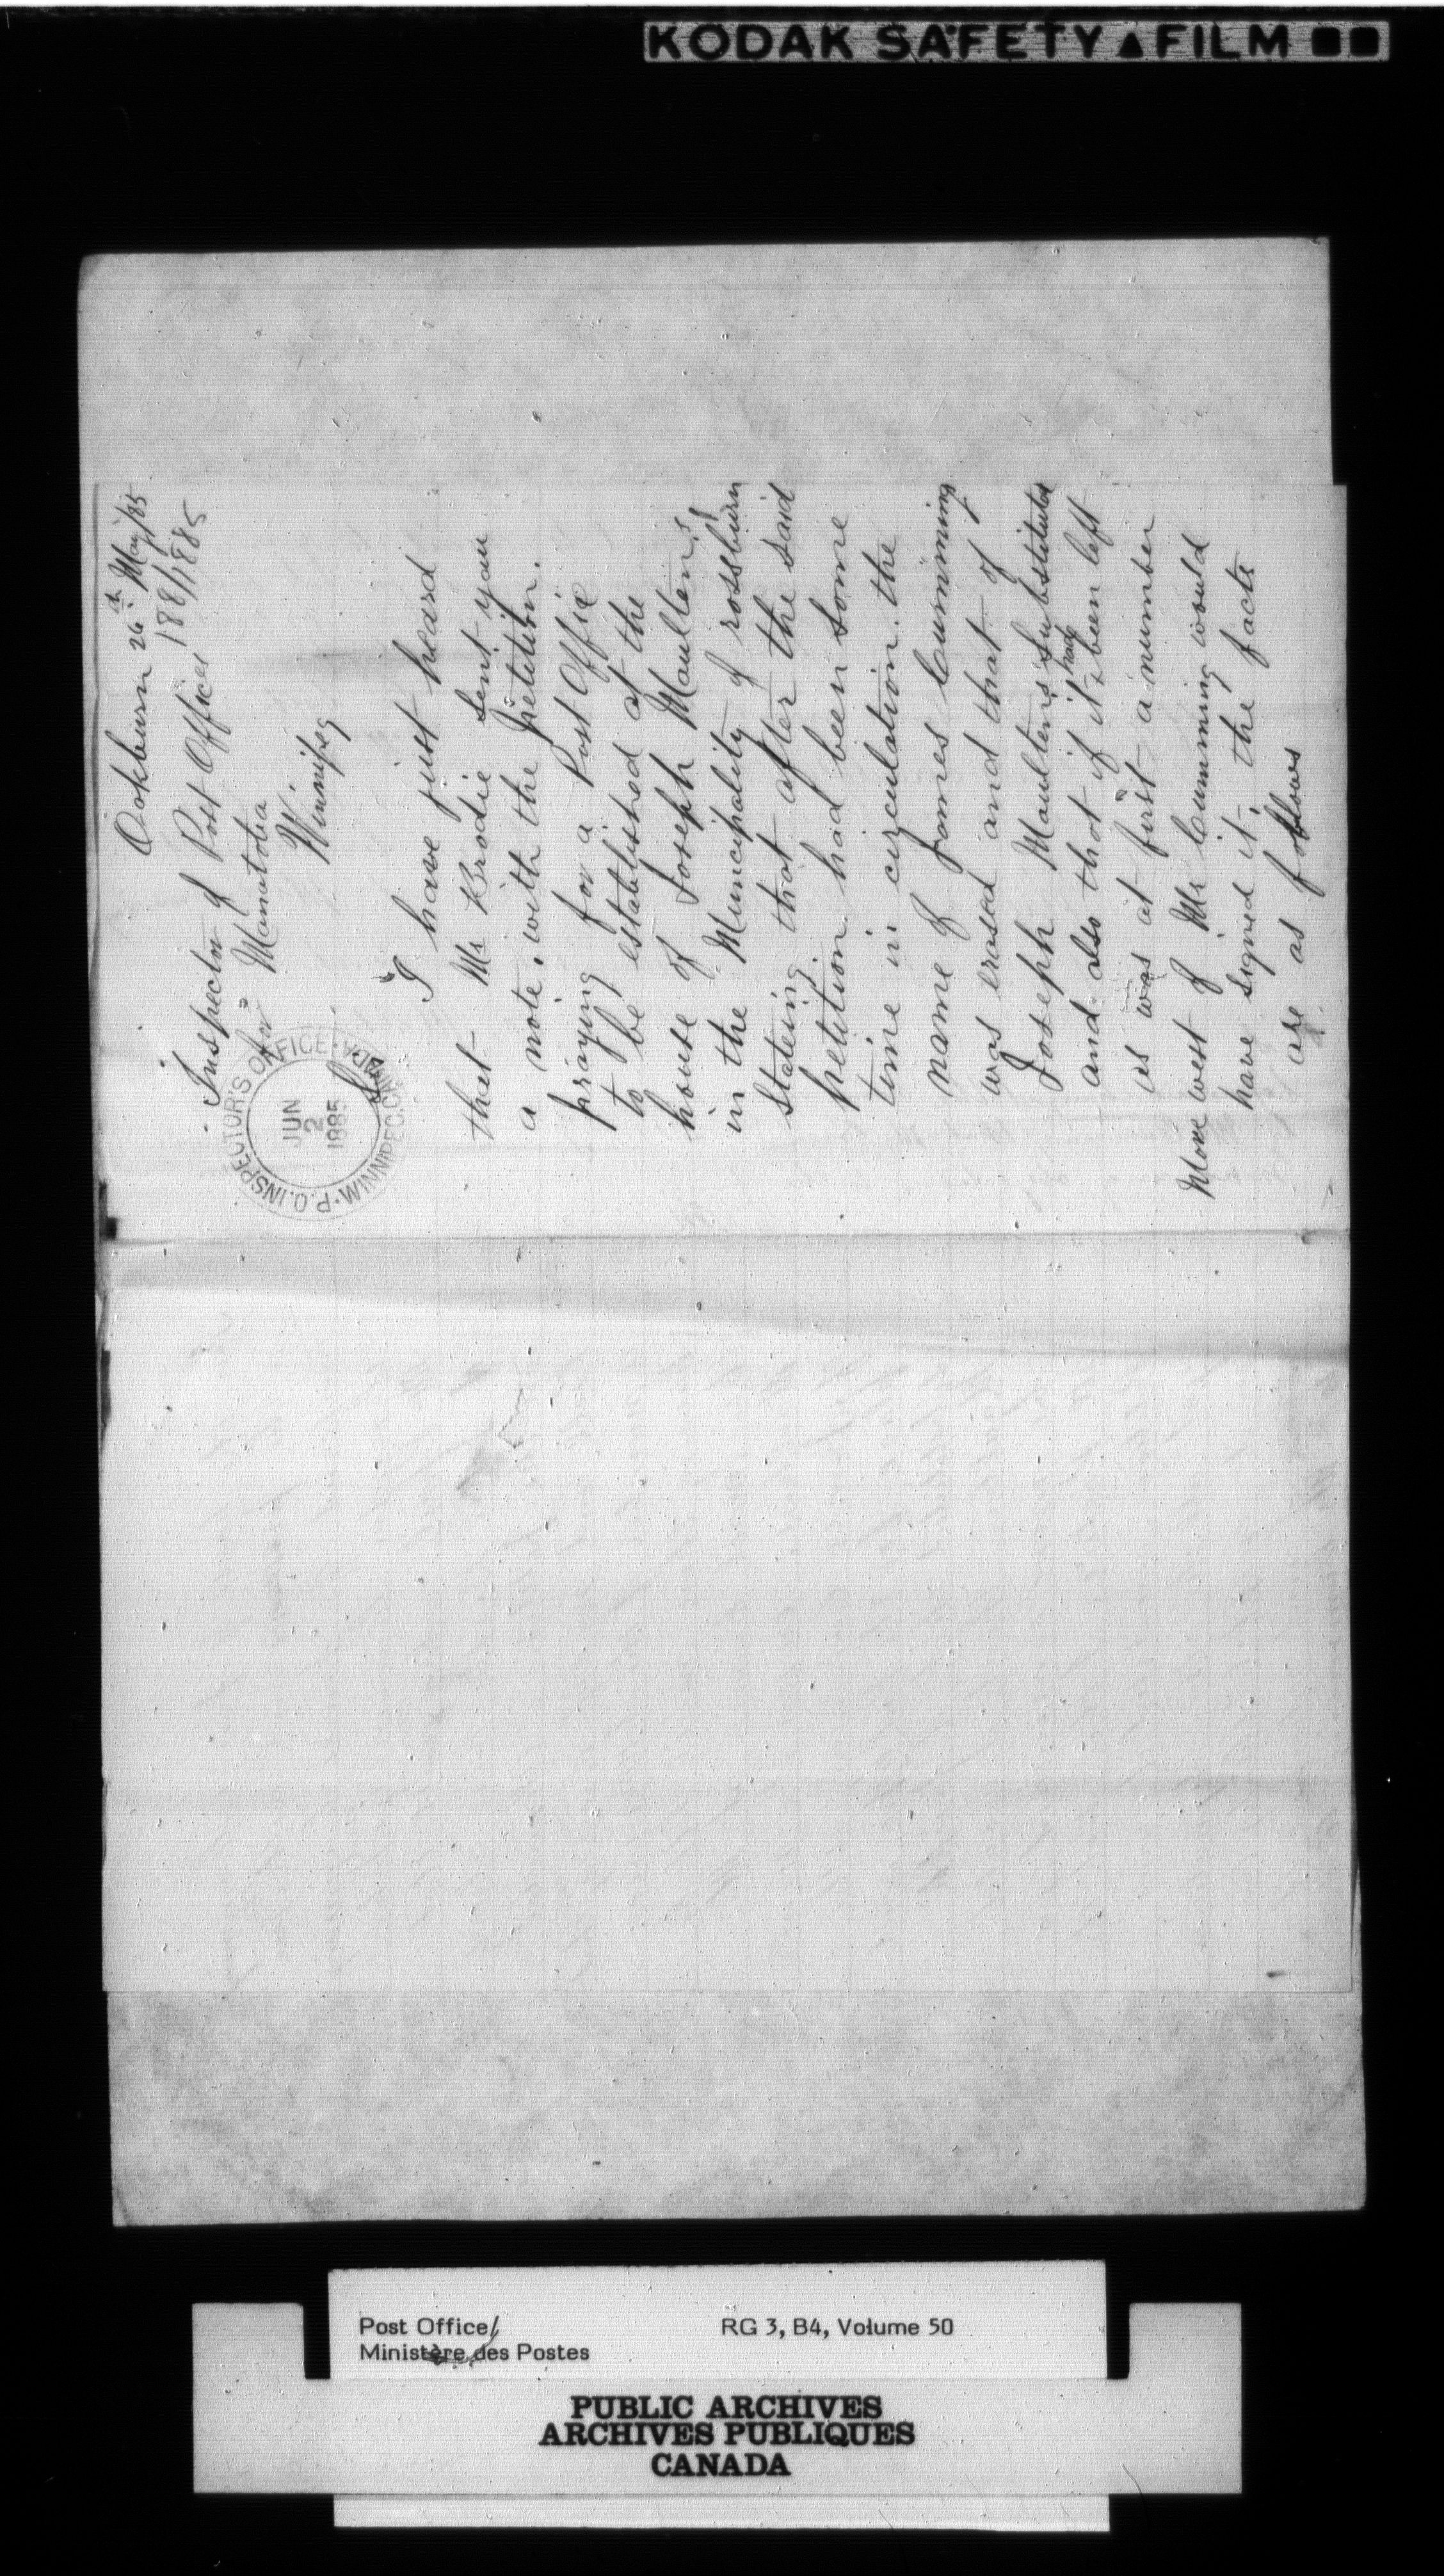 KODAK SAFETY ▲ FILM
Oakburn 26th May/85
188/1885
Inspector of Post Offices
for Manatoba
Winnipeg
P.O. INSPECTOR'S OFFICE · WINNIPEG, CANADA
JUN
2
1885
Sir
I have just heard
that Mr Brodie sent you
a note, with the petition.
praying for a Post Office
to be established at the
house of Joseph Maulten's
in the Municipality of rossburn
stateing that after the said
petition had been some
time in circulation. the
name of James Cumming
was erased and that of
Joseph Maulten's substituted
and also that if it had been left
as was at first a number
More west of Mr Cumming would
have signed it, the facts
are as follows
Post Office/
Ministère des Postes
RG 3, B4, Volume 50
PUBLIC ARCHIVES
ARCHIVES PUBLIQUES
CANADA